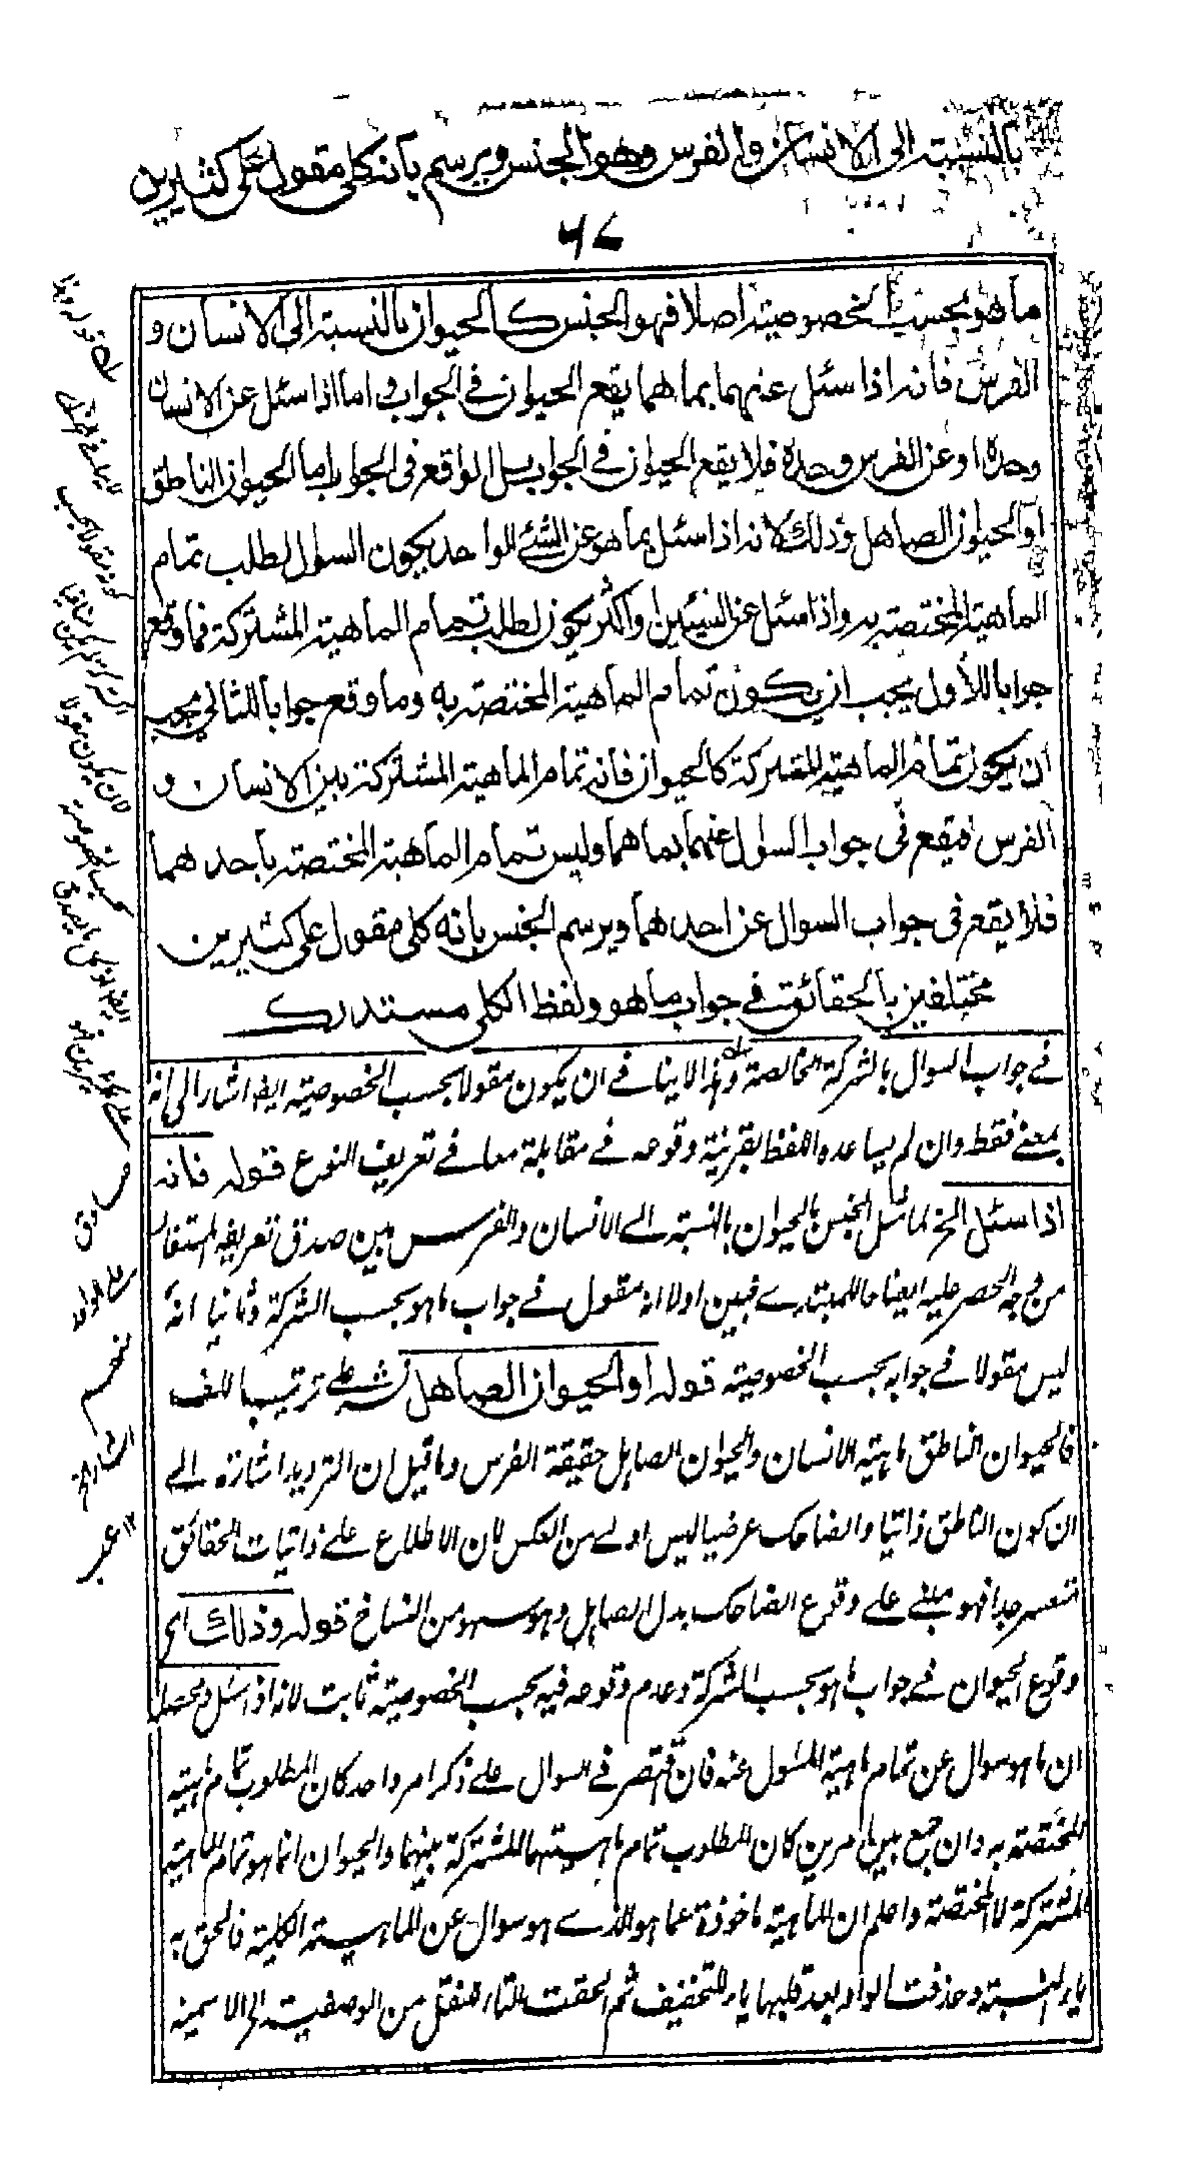 بالنسبة الى الانسان والفرس وهو الجنس ويرسم بانه كلى مقول على كثيرين
٦٧
ما هو بحسب الخصوصية اصلا فهو الجنس كالحيوان بالنسبة الى الانسان و
الفرس فانه اذا سئل عنهما بما هما يقع الحيوان فى الجواب واما اذا سئل عن الانسان
وحده او عن الفرس وحده فلا يقع الحيوان فى الجواب بل الواقع فى الجواب اما الحيوان الناطق
او الحيوان الصاهل وذلك لانه اذا سئل بما هو عن الشئ الواحد يكون السوال لطلب تمام
الماهية المختصة به واذا سئل عن الشيئين واكثر يكون لطلب تمام الماهية المشتركة فما وقع
جوابا للأول يجب ان يكون تمام الماهية المختصة به وما وقع جوابا للثانى يجب
ان يكون تمام الماهية المشتركة كالحيوان فانه تمام الماهية المشتركة بين الانسان و
الفرس فيقع فى جواب السوال عنهما بما هما وليس تمام الماهية المختصة باحدهما
فلا يقع فى جواب السوال عن احدهما ويرسم الجنس بانه كلى مقول على كثيرين
مختلفين بالحقائق فى جواب ما هو ولفظ الكلى مستدرك
فے جواب السوال بالشركة الخالصة وهذا لاينافے ان يكون مقولا بحسب الخصوصية ايضا اشار الى انه
بمعنے فقط وان لم يساعده اللفظ بقرينة وقوعه فے مقابلة معا فے تعريف النوع قوله فانه
اذا سئل الخ لما مثل الجنس بالحيوان بالنسبة الے الانسان والفرس بين صدق تعريفه المستفاد
من وجه الحصر عليه ايضاحا للمبتدے فبين اولا انه مقول فے جواب ما هو بحسب الشركة وثانيا انه
ليس مقولا فے جوابه بحسب الخصوصية قوله او الحيوان الصاهل نشر علے ترتيب اللف
فالحيوان الناطق ماهية الانسان والحيوان الصاهل حقيقة الفرس وما قيل ان الترديد اشارة الے
ان كون الناطق ذاتيا والضاحك عرضيا ليس اولے من العكس لان الاطلاع علے ذاتيات الحقائق
متعسر جدا فهو مبنے علے وقوع الضاحك بدل الصاهل وهو سهو من النساخ قوله وذلك اى
وقوع الحيوان فے جواب ما هو بحسب الشركة وعدم وقوعه فيه بحسب الخصوصية ثابت لانه اذا سئل ومحصله
ان ما هو سوال عن تمام ماهية المسئول عنه فان اقتصر فے السوال علے ذكر امر واحد كان المطلوب تمام ماهيته
المختصة به وان جمع بين امرين كان المطلوب تمام ماهيتهما المشتركة بينهما والحيوان انما هو تمام الماهية
المشتركة لا المختصة واعلم ان الماهية ماخوذة عما هو الذے هو سوال عن الماهية الكلية فالحق به
ياء النسبة وحذفت الواو بعد قلبها ياء للتخفيف ثم الحقت التاء للنقل من الوصفية الى الاسمية